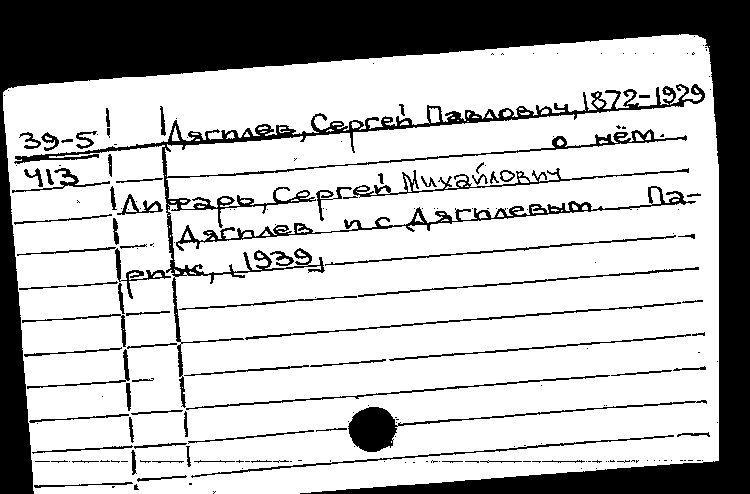 39-5
413
Дягилев, Сергей Павлович, 1872-1929
о нём.
Лифарь, Сергей Михайлович
Дягилев и с Дягилевым. Па-
риж, [1939]